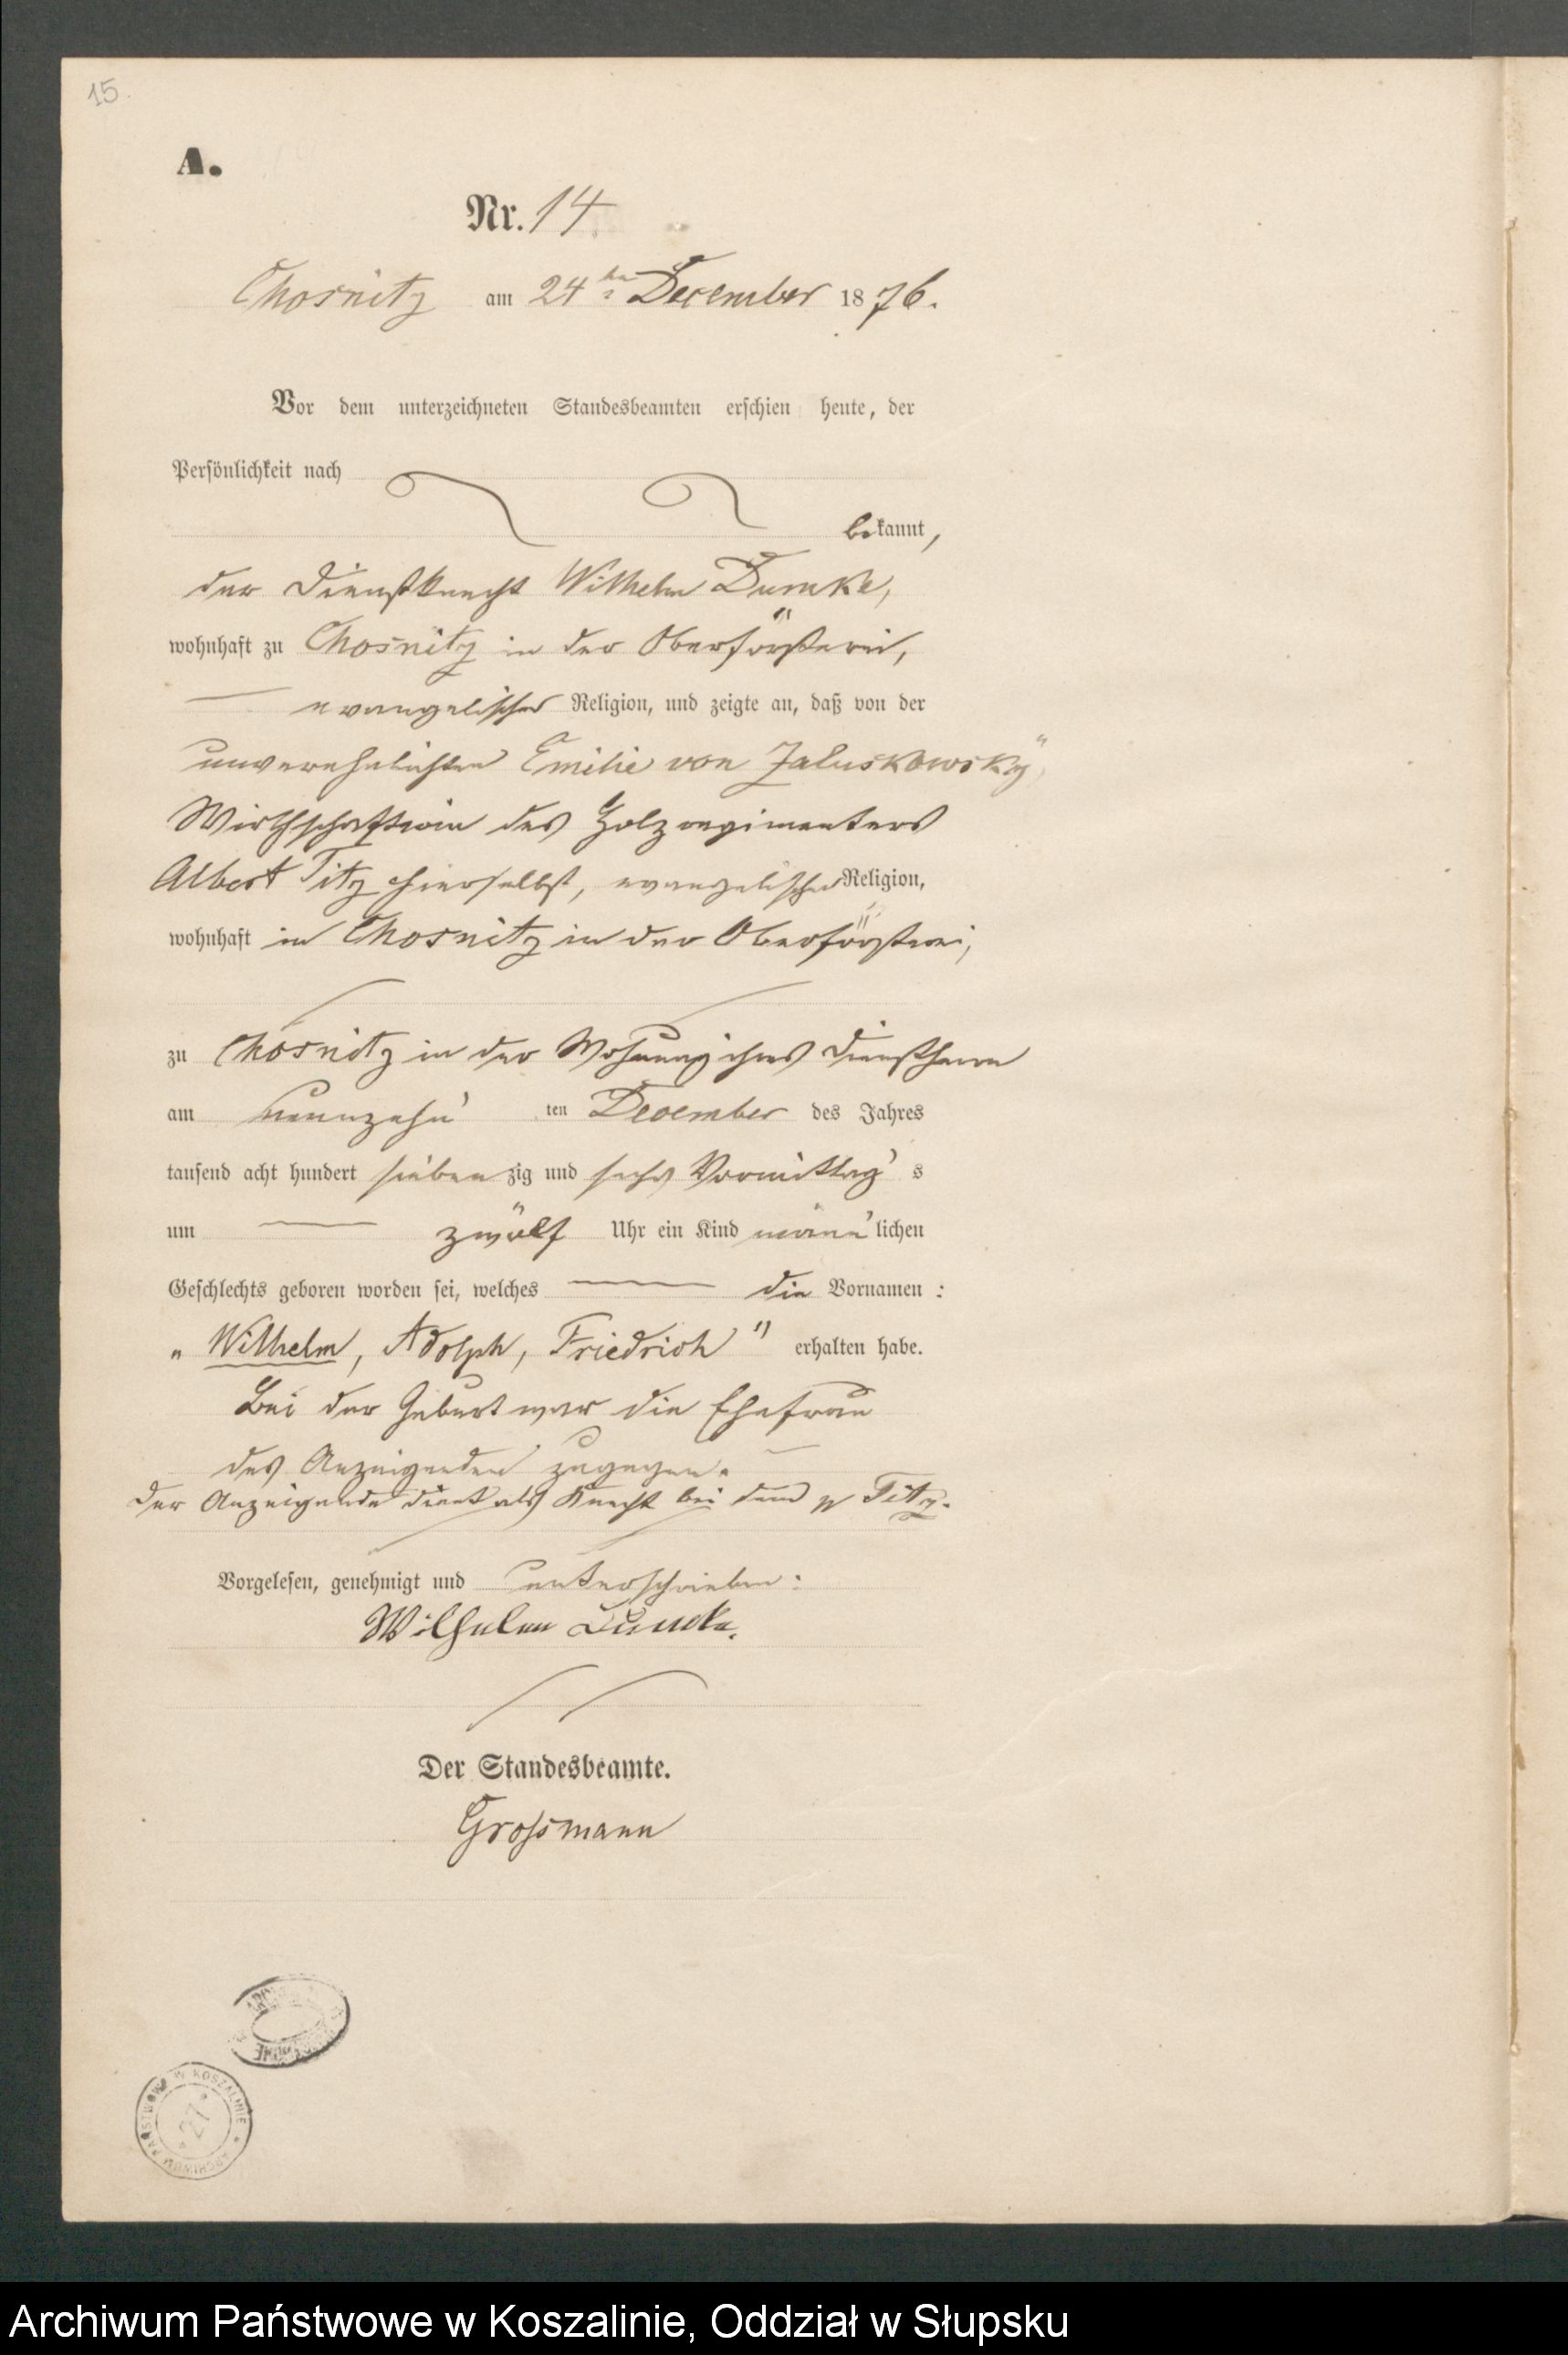 15.
A.
Nr. 14
Chosnitz am 24ten December 1876.
Vor dem unterzeichneten Standesbeamten erschien heute, der
Persönlichkeit nach
bekannt,
der Dienstknecht Wilhelm Dumke,
wohnhaft zu Chosnitz in der Oberförsterei,
evangelischer Religion, und zeigte an, daß von der
unverehelichten Emilie von Jaluskowsky,
Wirthschafterin des Holzregimenters
Albert Titz hierselbst, evangelischer Religion,
wohnhaft in Chosnitz in der Oberförsterei,
zu Chosnitz in der Wohnung ihres Dienstherrn
am neunzehn ten December des Jahres
tausend acht hundert sieben zig und sechs Vormittag s
um zwölf Uhr ein Kind männ lichen
Geschlechts geboren worden sei, welches die Vornamen :
„Wilhelm, Adolph, Friedrich" erhalten habe.
Bei der Geburt war die Ehefrau
des Anzeigenden zugegen.
Der Anzeigende dient als Knecht bei dem p Titz.
Vorgelesen, genehmigt und unterschrieben:
Wilhelm Dumke.
Der Standesbeamte.
Grossmann
ARCHIWUM PAŃSTWOWE W KOSZALINIE
27
Archiwum Państwowe w Koszalinie, Oddział w Słupsku